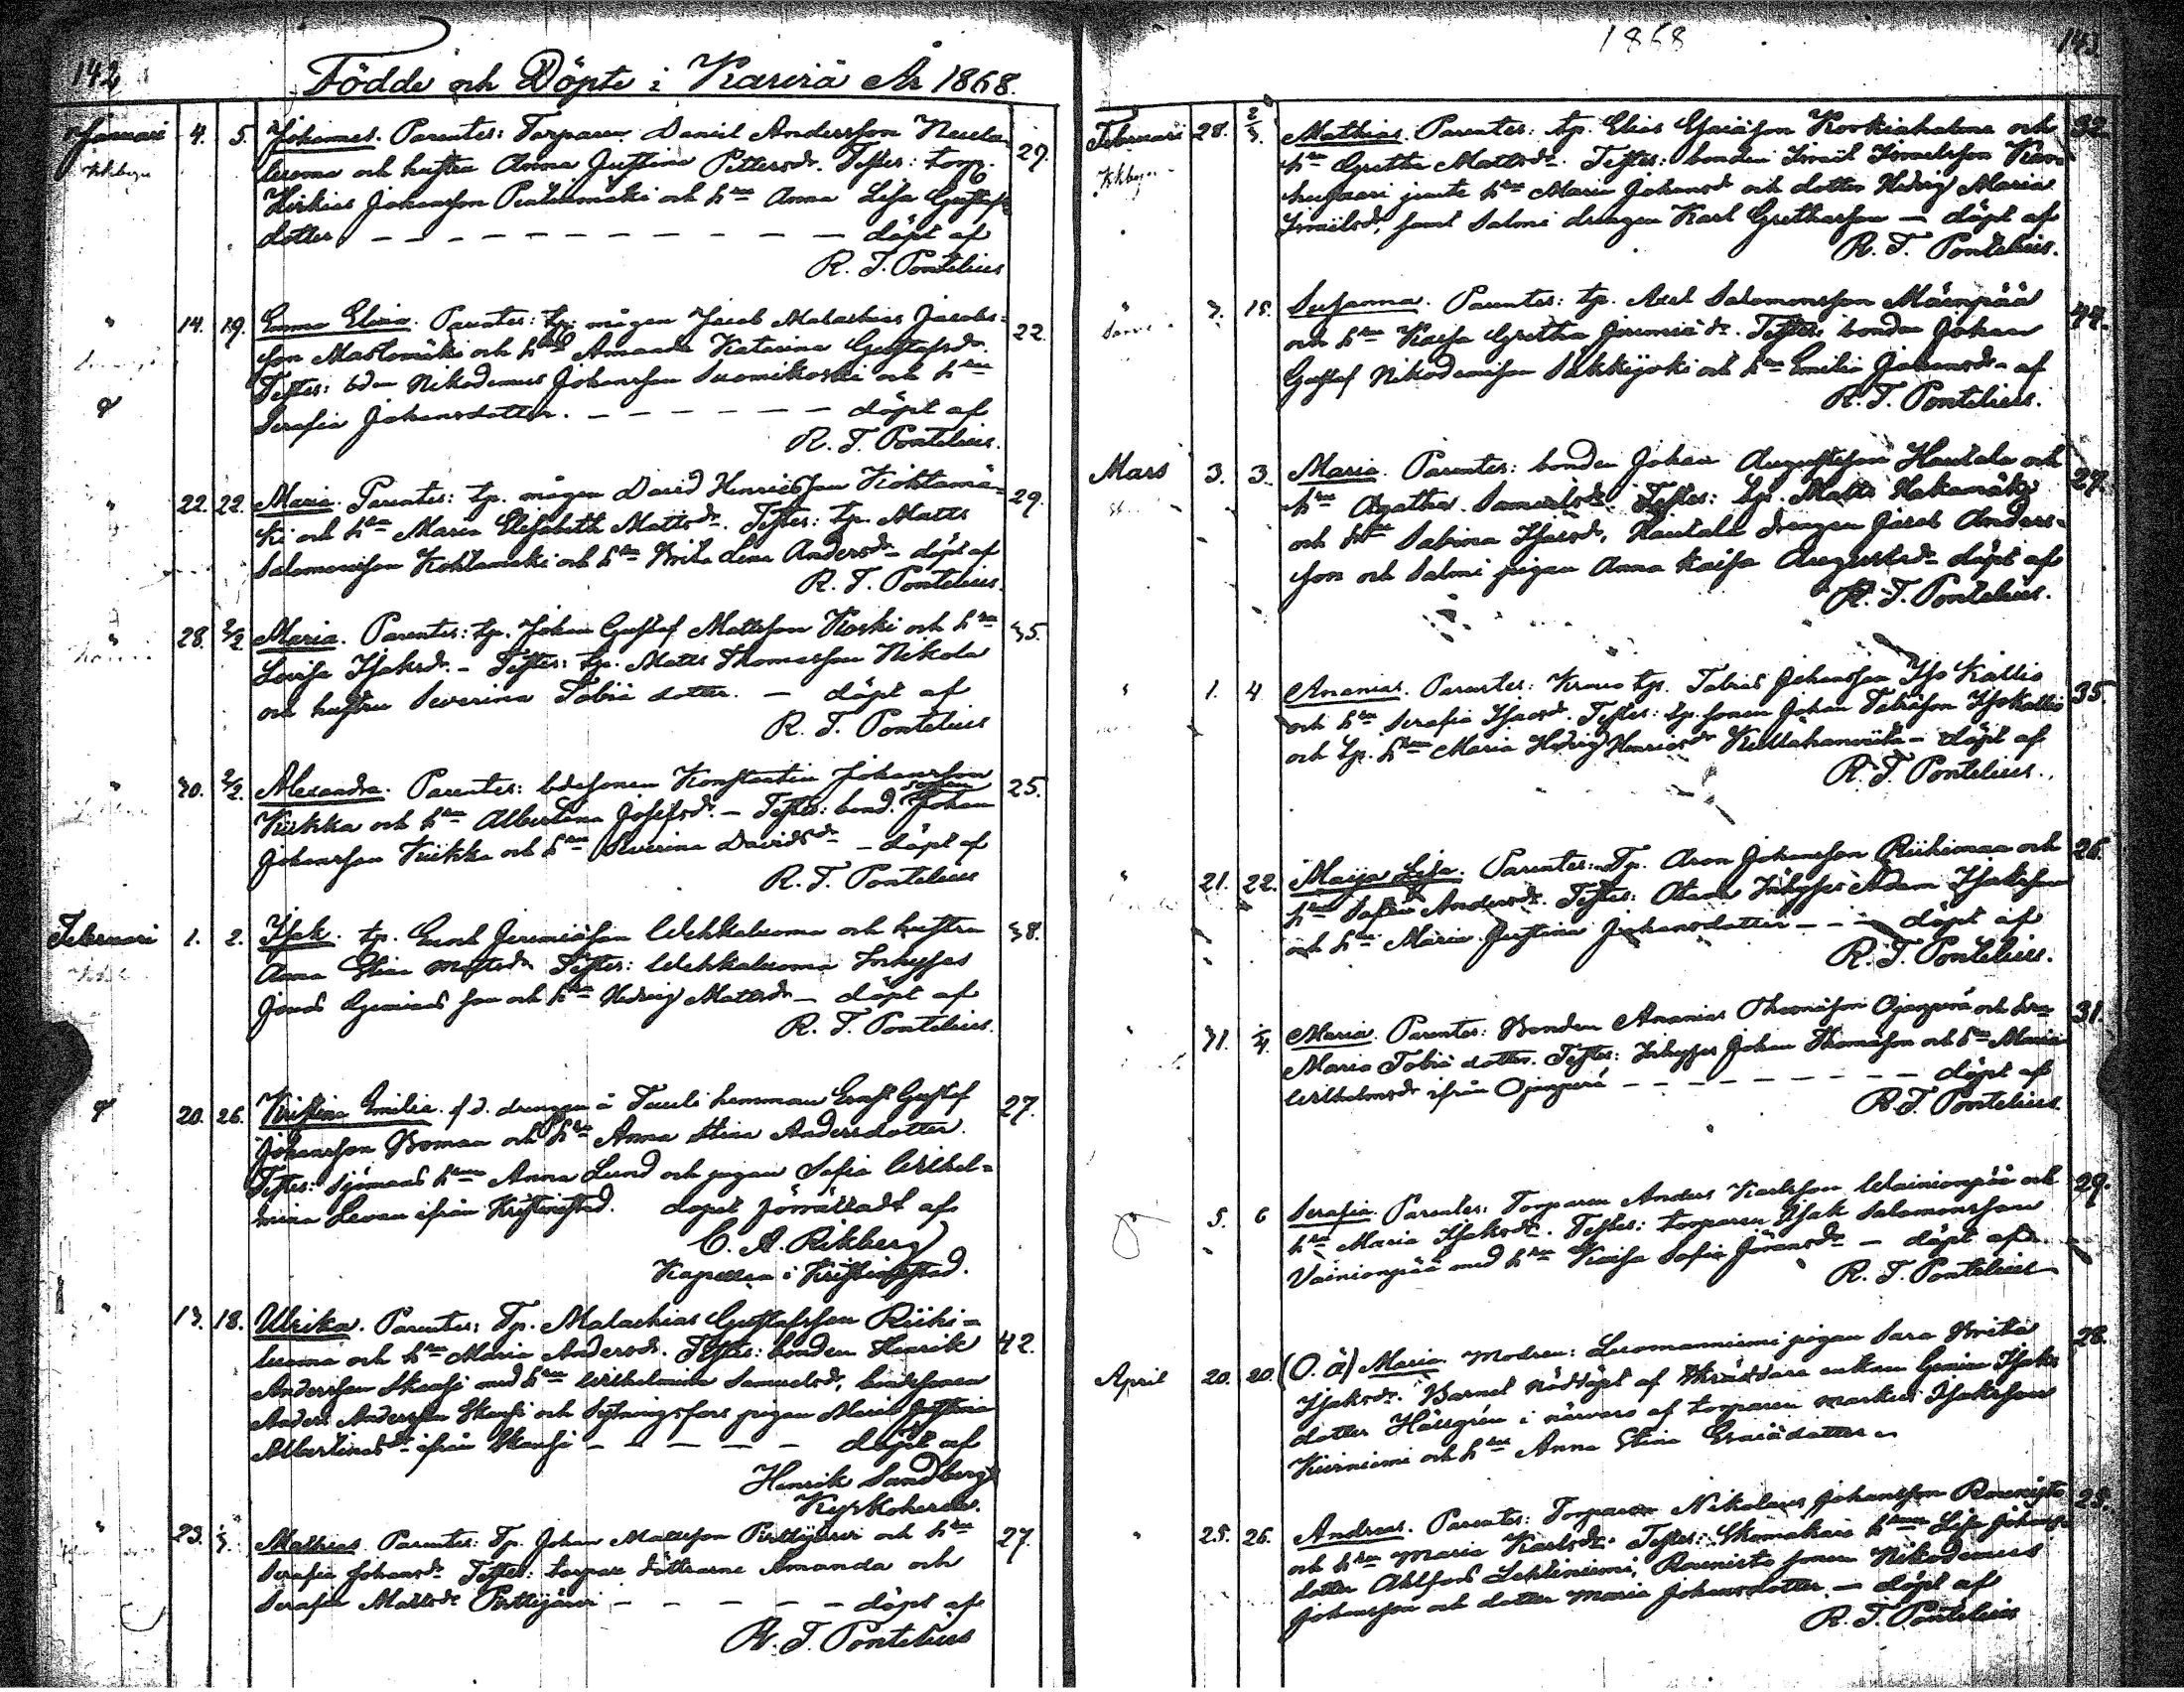 142
Födde och Döpte i Karvia År 1868.
Januari 4. 5. Johannes. Parentes: Torparen Daniel Andersson Neula-
luoma och hustru Anna Justina Pettersdr. Testes: torp. 29.
Johansson och hru Anna Lisa Gustafs
dotter. — döpt af
R. T. Pontelius
" 14. 19. Emma Elina. Parentes: tp. mågen Jacob Malachias Jacobs-
son och hru Amanda Katarina Gustafsdr. 22.
Testes: bdn Nikodemus Johansson Suomikoski och hru
Serafia Johansdotter. — döpt af
R. T. Pontelius.
" 22. 22. Maria. Parentes: tp. mågen David Henriksson Kohtamä- 29.
ki och hru Maria Elisabeth Mattsdr. Testes: tp. Matts
Salomonsson Kohtamäki och hru Brita Lena Andersdr — döpt af
R. T. Pontelius.
" 28. 2/2 Maria. Parentes: tp. Johan Gustaf Mattsson Koski och hru 35.
Lovisa Isaksdr. — Testes: tp. Matts Thomasson Nikola
och hustru Severina Tobiä dotter. — döpt af
R. T. Pontelius
" 30. 2/2. Alexandra. Parentes: bdesonen Konstantin Johansson
Kiikka och hru Albertina Josefsdr. — Testes: bond. sonen Johan 25.
Johansson Kiikka och hru Severina Davidsdr — döpt af
R. T. Pontelius
Februari 1. 2. Isak. tp. Enok Jeremiäson Wehkaluoma och hustru 38.
Anna Stina Mattsdr Testes: Wehkaluoma Inhyses
Jonas son och hru Hedvig Mattsdr — döpt af
R. T. Pontelius.
20. 26. Kristina Emilia. f. d. drengen å Tauli hemman Ernst Gustaf 27.
Johansson Boman och hru Anna Stina Andersdotter.
Testes: Sjömans hrun Anna Lund och pigan Sofia Wilhel-
mina Levan ifrån Kristinestad. dopet förrättadt af
C. A. Rikberg
Kapellan i Kristinestad.
" 17. 18. Ulrika. Parentes: Tp. Malachias Gustafsson Riihi-
luoma och hru Maria Andersdr. Testes: bonden Henrik 42.
Andersson Skansi med hru Wilhelmina Samuelsdr, bondesonen
Anders Andersson Skansi och Sytningsfars pigan Maria Justina
Albertinasdr ifrån Skansi — döpt af
Henrik Sandberg
Kyrkoherde.
" 23. 1/3. Mathias. Parentes: Tp. Johan Mattsson Pirttijärvi och hru 27.
Serafia Johansdr. Testes: torpare döttrarne Amanda och
Serafia Mattsdr Pirttijärvi — döpt af
R. T. Pontelius
1868
143
Februari 28. 2/3. Mathias. Parentes: tp. Elias Esaiäson och 32.
hru Gretha Mattsdr. Testes: bonden Ismäl Ismaelsson
jemte hru Maria Johansdr och dotter Hedvig Maria
Ismälsdr, samt Salmi drengen Karl Grethasson — döpt af
R. T. Pontelius.
" 7. 15. Susanna. Parentes: tp. Axel Salomonsson Mäenpää
och hru Kaisa Gretha Jeremiä dr. Testes: bonden Johan 44.
Gustaf Nikodemsson Säkkijoki och hru Emilia Johansdr — af
R. T. Pontelius.
Mars 3. 3. Maria. Parentes: bonden Johan Augustsson Hautala och
hru Agatha Samuelsdr. Testes: tp. Matts Hakamäki 27.
och hru Sabina Isacsdr, Hautala drengen Jacob Anders-
son och Salmi pigan Anna Kaisa Augustsdr — döpt af
R. T. Pontelius.
" 1. 4. Ananias. Parentes: Krono tp. Tobias Johansson Iso Kallio 35.
och hru Serafia Isacsdr. Testes: tp. sonen Johan Tobiäson Isokallio
och tp. hrun Maria Hedvig Henricsdr — döpt af
R. T. Pontelius.
" 21. 22. Maija Lisa. Parentes: Tp. Aron Johansson Riihimaa och 26.
hru Sofia Andersdr. Testes: Inhyses Adam Isaksson
och hru Maria Justina Johansdotter — döpt af
R. T. Pontelius.
" 31. 1/4. Maria. Parentes: Bonden Ananias Thomäson Ojanperä och hru 31.
Maria Tobiä dotter. Testes: Inhyses Johan Thomäson och hru Maria
Wilhelmsdr ifrån Ojanperä — döpt af
R. T. Pontelius.
5. 6 Serafia. Parentes: Torparen Anders Karlsson Wainionpää och 29.
hru Maria Isaksdr. Testes: torparen Isak Salomonsson
Vainionpää med hru Kaisa Sofia Göransdr — döpt af
R. T. Pontelius
April 20. 20. (O. ä) Maria. Modren: Luomanniemi pigan Sara Brita 28.
Isaksdr. Barnet nöddöpt af Skräddare enkan Isaks
dotter Hällgrén i närvaro af torparen Markus Isaksson
Kiviniemi och hru Anna Stina Esaiädotter
" 25. 26. Andreas. Parentes: Torparen Nikolaus Johansson Rounisto 25.
och hru Maria Karlsdr. Testes: Skomakare hrun Lisa Johans
dotter Ahlfors Lehtiniemi, Rounisto sonen Nikodemus
Johansson och dotter Maria Johansdotter — döpt af
R. T. Pontelius